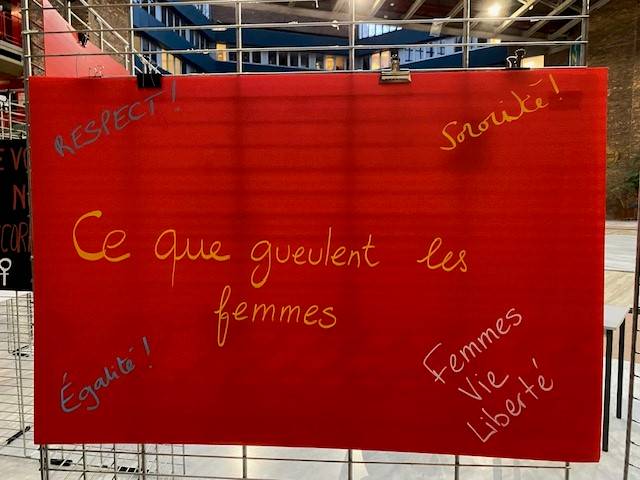 RESPECT !
Sororité !
Ce que gueulent les
femmes
Égalité !
Femmes
Vie
Liberté